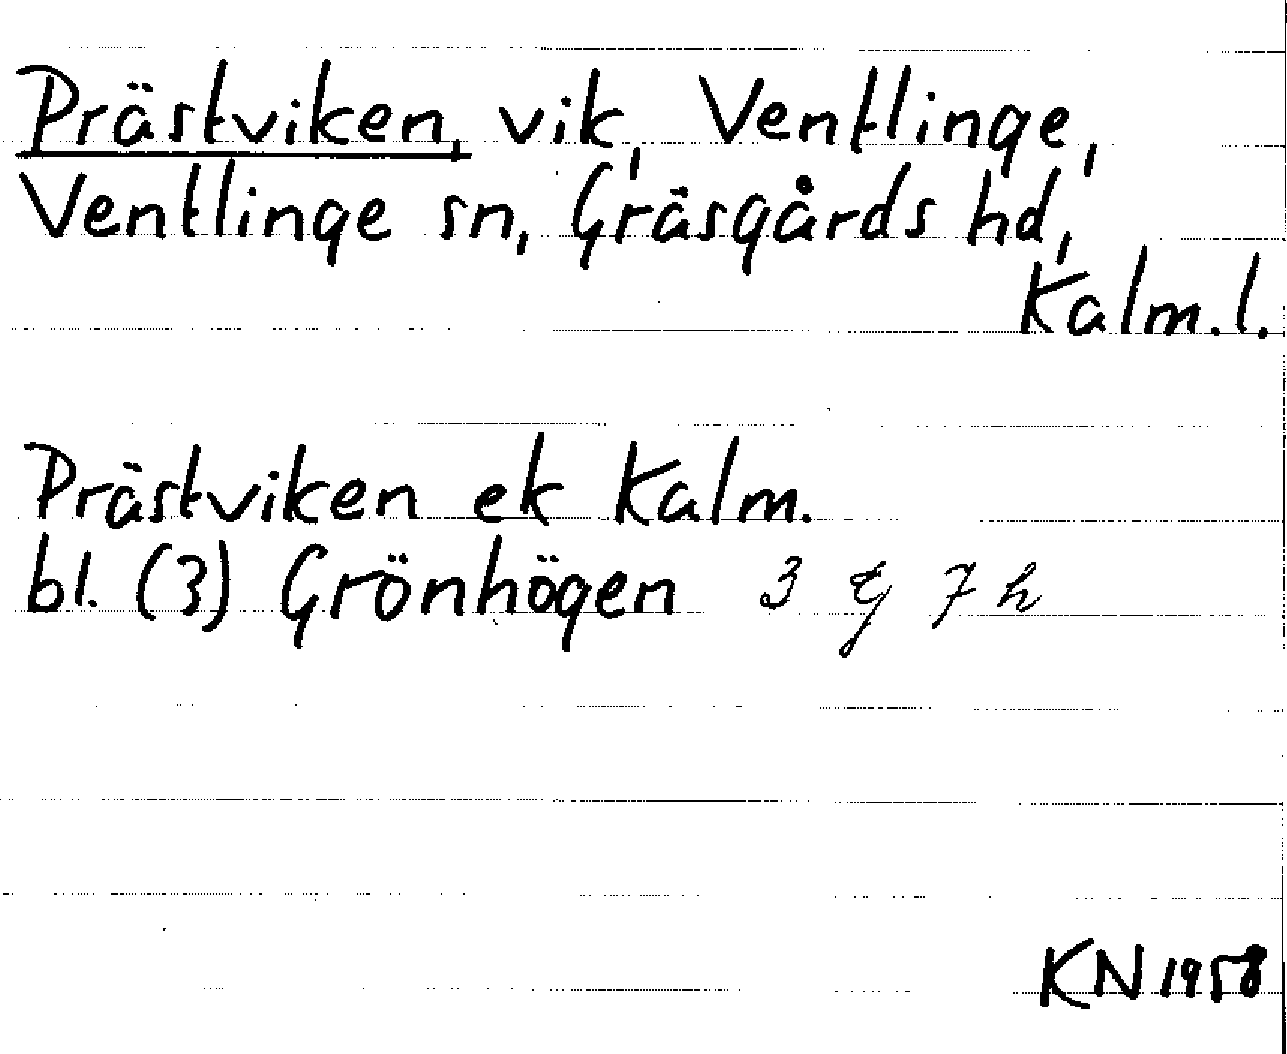 Prästviken, vik, Ventlinge,
Ventlinge sn, Gräsgårds hd,
Kalm. l.
Prästviken ek Kalm.
bl. (3) Grönhögen 3 g 7 h
KN 1958